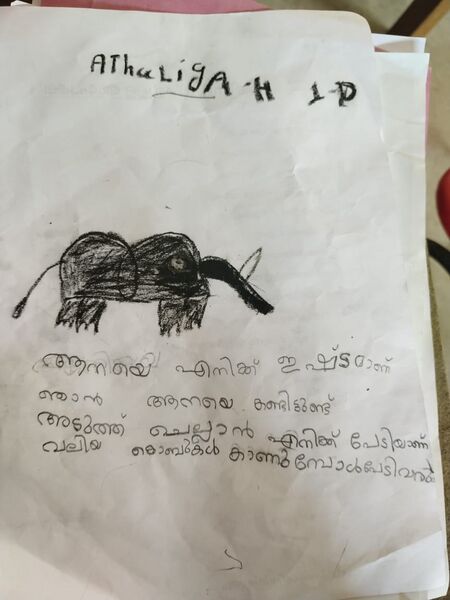 AThaLigA-H 1-D
ആനിയെ എനിക്ക് ഇഷ്ടമാണ്
ഞാൻ ആനയെ കണ്ടിട്ടുണ്ട്
അടുത്ത് ചെല്ലാൻ എനിക്ക് പേടിയാണ്
വലിയ കൊമ്പുകൾ കാണുമ്പോൾപേടിവരും